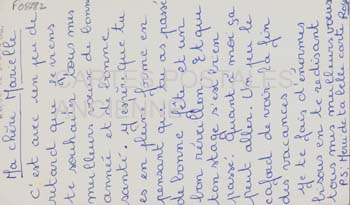 F05082
Ma chère Murielle
C'est avec un peu de
retard que je viens
te souhaiter tous mes
meilleurs vœux de bonne
année et bonne
santé. J'espère que tu
es en pleine forme en
pensant que tu as passé
de bonne fête et un
bon réveillon. Et que
ton stage s'est bien
passé. Quant à moi ça
peut aller. Un peu le
cafard de voir la fin
des vacances.
Je te fais d'énormes
bisous en te redisant
tous mes meilleurs vœux
P.S. Merci de ta belle carte
CARTES POSTALES
ANCIENNES